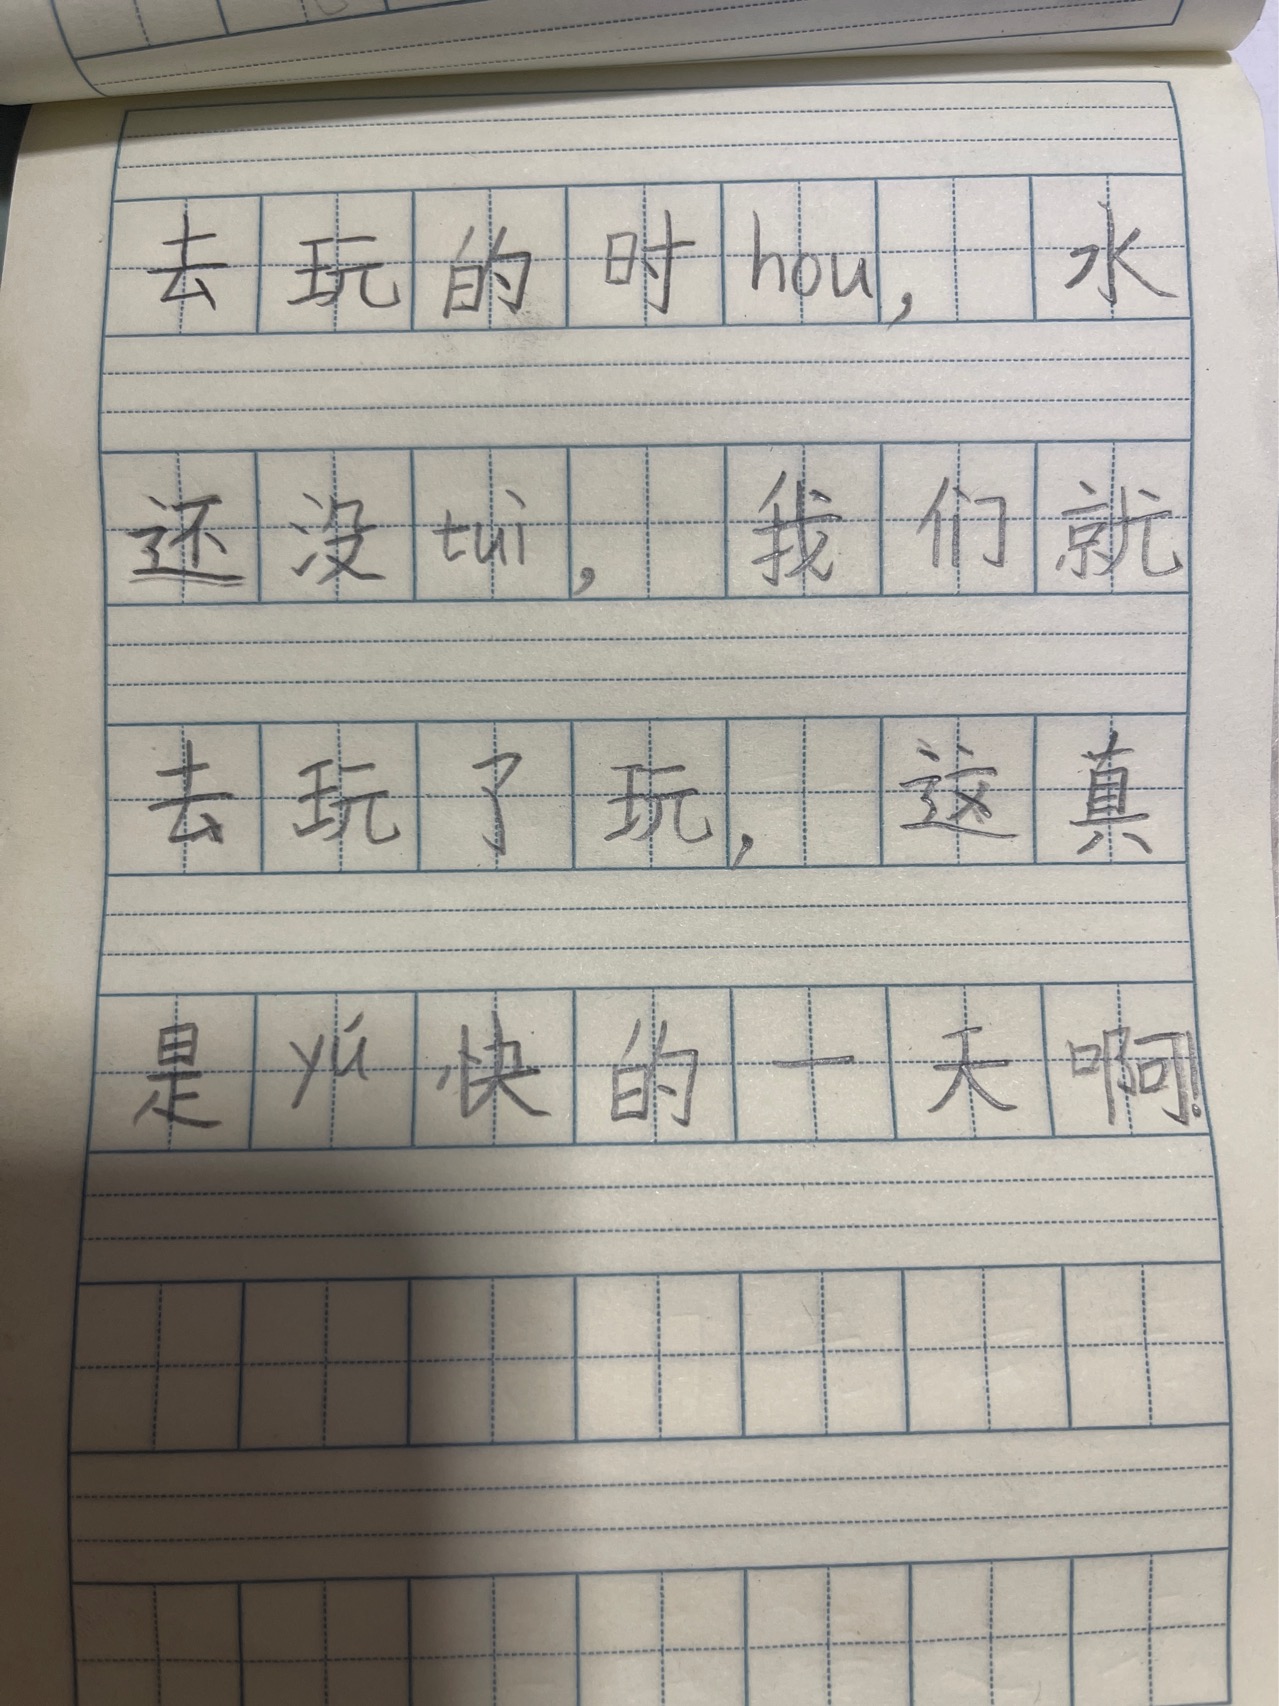 去玩的时hou，水
还没tui，我们就
去玩了玩，这真
是yú快的一天啊！